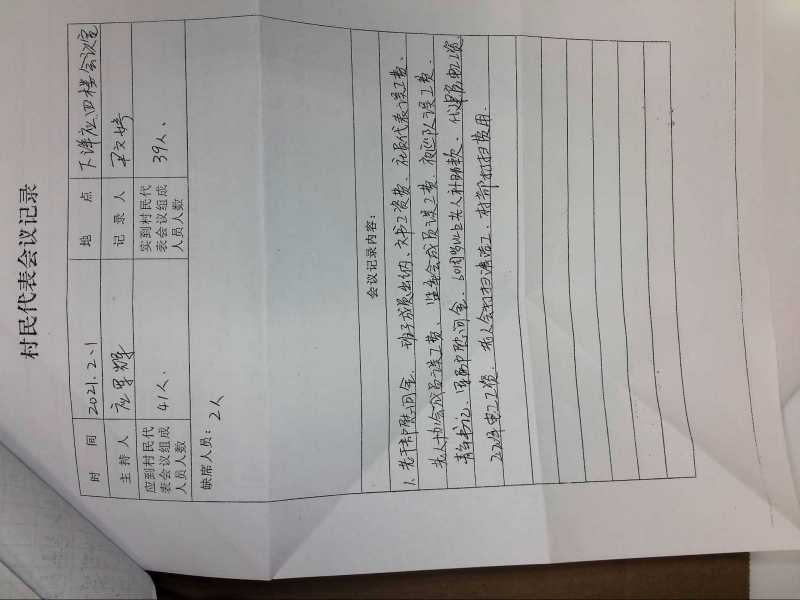 村民代表会议记录
时 间 2021.2.1 地 点 下洋应四楼会议室
主 持 人 应军辉 记 录 人
应到村民代表会议组成人员人数 41人. 实到村民代表会议组成人员人数 39人.
缺席人员: 2人
会议记录内容:
1. 老干部慰问金、班子成员出纳、文书工资费、社长代表误工费、
老人协会成员误工费、监委会成员误工费、夜巡队误工费、
青年书记、军属慰问金、60周岁以上老人补助款、
2020年电工工资、老人会打扫清洁工、村部打扫费用.